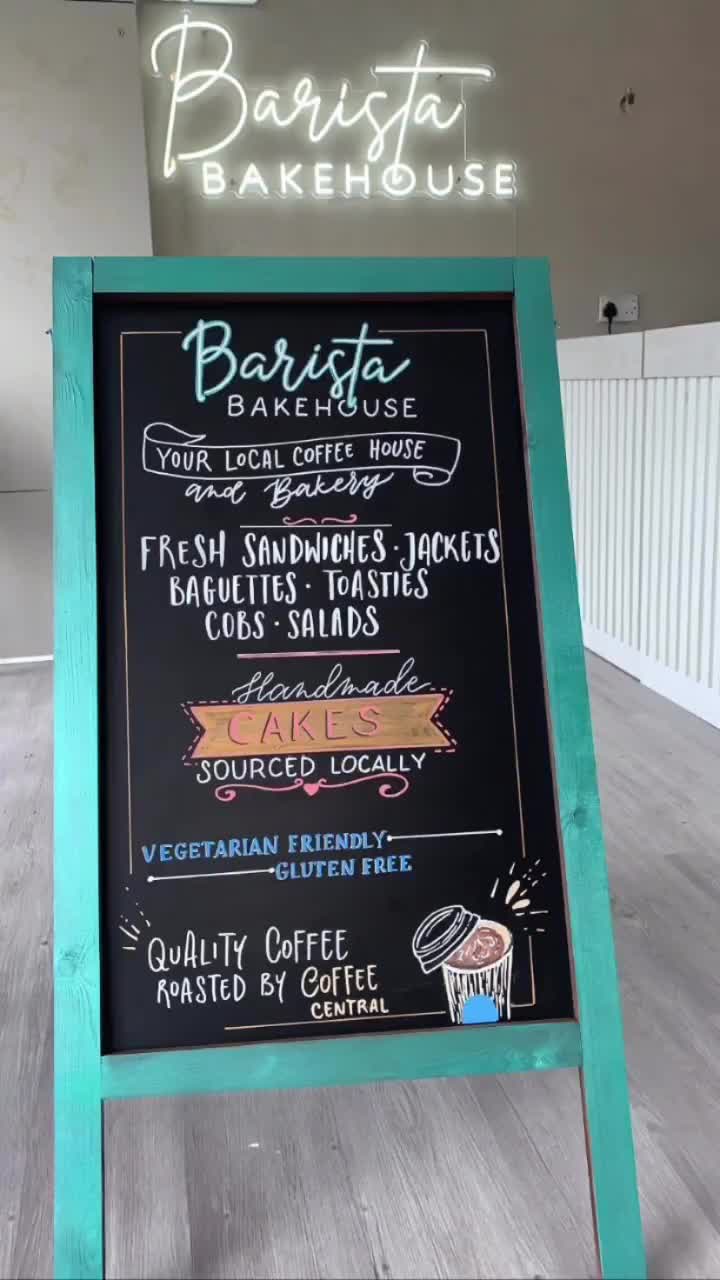 Barista
BAKEHOUSE
Barista
BAKEHOUSE
YOUR LOCAL COFFEE HOUSE
and Bakery
FRESH SANDWICHES · JACKETS
BAGUETTES · TOASTIES
COBS · SALADS
Handmade
CAKES
SOURCED LOCALLY
VEGETARIAN FRIENDLY
GLUTEN FREE
QUALITY COFFEE
ROASTED BY COFFEE
CENTRAL